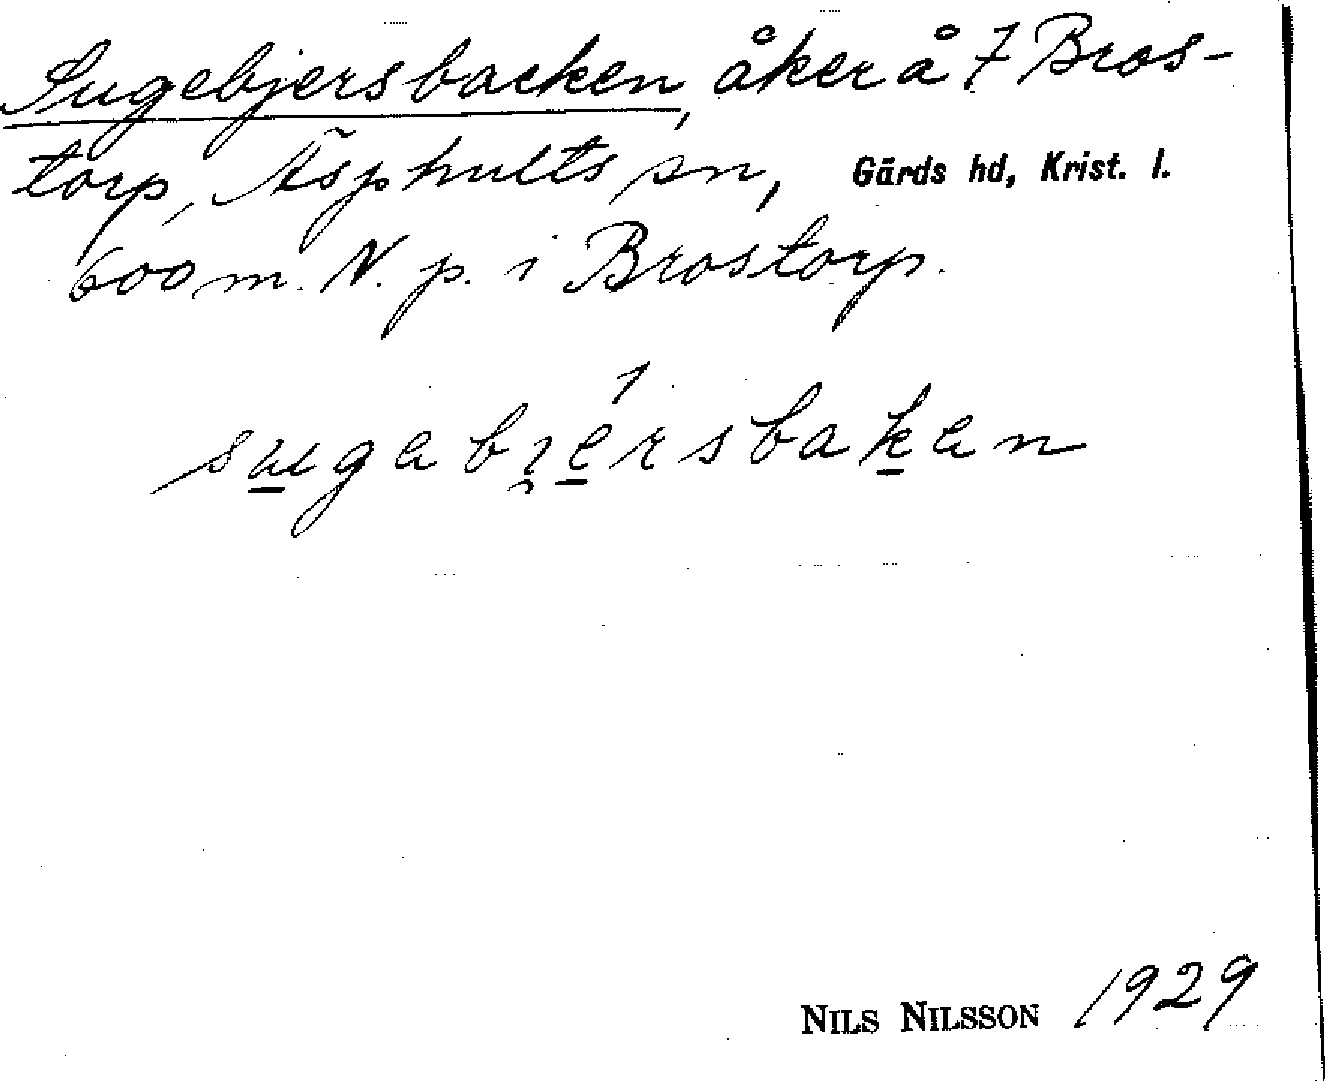 Sugebjersbacken, åker å 7 Bros-
torp, Äsphults sn, Gärds hd, Krist. l.
600 m. N. p. i Brostorp.
NILS NILSSON 1929